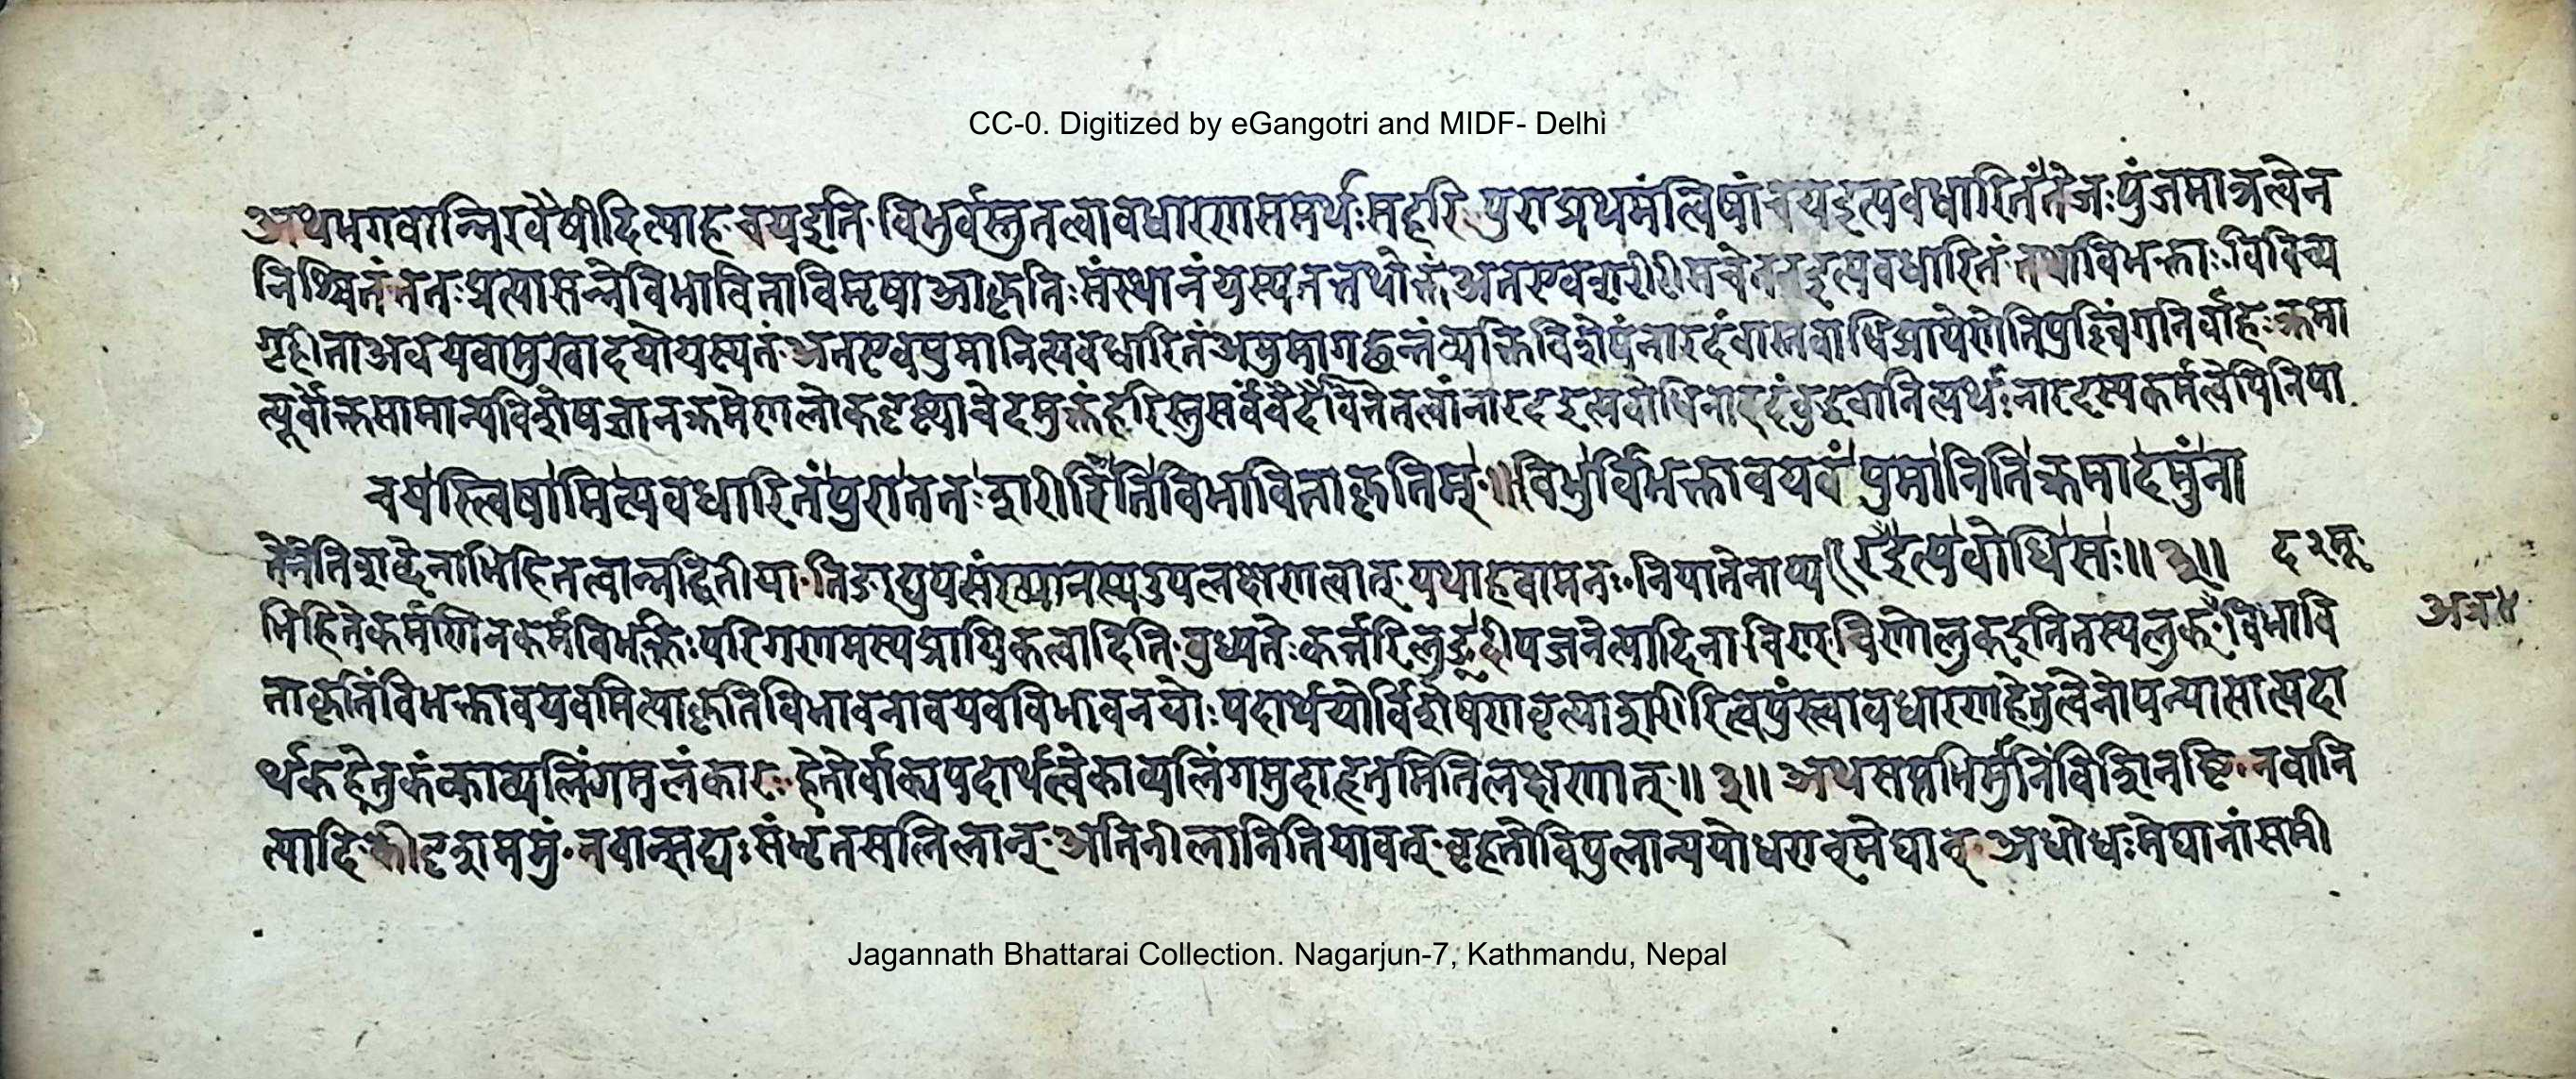 CC-0. Digitized by eGangotri and MIDF- Delhi
अथ भगवान्निरवैषीदित्याह चयइति विभुर्वस्तुतत्वावधारणसमर्थः सहरि पुरा प्रथमं त्विषां चयइत्यवधारितं तेजः पुंजमात्रत्वेन
निश्चितं ततः प्रत्यासन्नेविभाविताविमृषाआकृतिः संस्थानं यस्य तत्तथोक्तं अतएव शरीरीमचेतनइत्यवधारितं तथा विभक्ताः विविच्य
गृहीताअवयवामुखादयोयस्यतं अतएवपुमानित्यवधारितं अमुमागछन्तं व्यक्तिविशेषं नारदं
त्पूर्वोक्तसामान्यविशेषज्ञानक्रमेणलोकदृष्ट्याचेदमुक्तं हरिस्तुसर्वं नारदइत्यवोधि नारदंबुद्धवानित्यर्थः नारदस्यकर्मत्वेपिनिपा
चयस्त्विषामित्यवधारितंपुराततःशरीरीतिविभाविताकृतिम् ॥ विभुर्विभक्तावयवंपुमानितिक्रमादमुंना
तेनेतिशब्देनाभिहितत्वान्नद्वितीया तिङाद्युपसंख्यानस्यउपलक्षणत्वात् यथाहवामनः निपातेनाप्य रदइत्यवोधिसः ॥ ३ ॥
भिहितेकर्मणिनकर्मविभक्तिः परिगणनस्यप्रायिकत्वादिति बुध्यतेः कर्त्तरिलुङ् दीपजनेत्यादिना चिण् चिणोलुकइतितस्यलुक् विभावि
ताकृतिंविभक्तावयवमित्याकृतिविभावनावयवविभावनयोः पदार्थयोर्विशेषणवृत्याशरीरित्वपुंस्त्वावधारणहेतुत्वेनोपन्यासात्पदा
र्थकहेतुकंकाव्यलिंगमलंकारः हेतोर्वाक्यपदार्थत्वेकाव्यलिंगमुदाहृतमितिलक्षणात् ॥ ३ ॥ अथसप्तभिर्मुनिंविशिनष्टि नवानि
त्यादि कीदृशममुं नवान्सद्यः संभृतसलिलान् अतिनीलानितियावत् बृहतोविपुलान्पयोधरान्मेघान् अधोधः मेघानांसमी
Jagannath Bhattarai Collection. Nagarjun-7, Kathmandu, Nepal